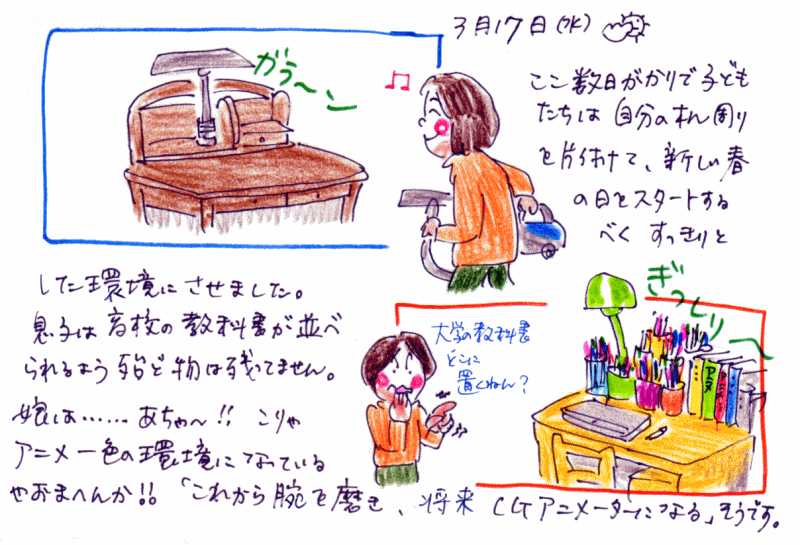 3月17日(水)
ガラ〜ン
ここ数日がかりで子ども
たちは自分の机周り
を片付けて、新しい春
の日をスタートする
べく すっきりと
した環境にさせました。
息子は高校の教科書が並べ
られるよう殆ど物は残てません。
娘は……あちゃ〜!! こりゃ
アニメ一色の環境になっている
やおまへんか!!「これから腕を磨き、将来 CGアニメーターになる」そうです。
大学の教科書
どこに
置くねん?
ぎっしりへ
アニメ